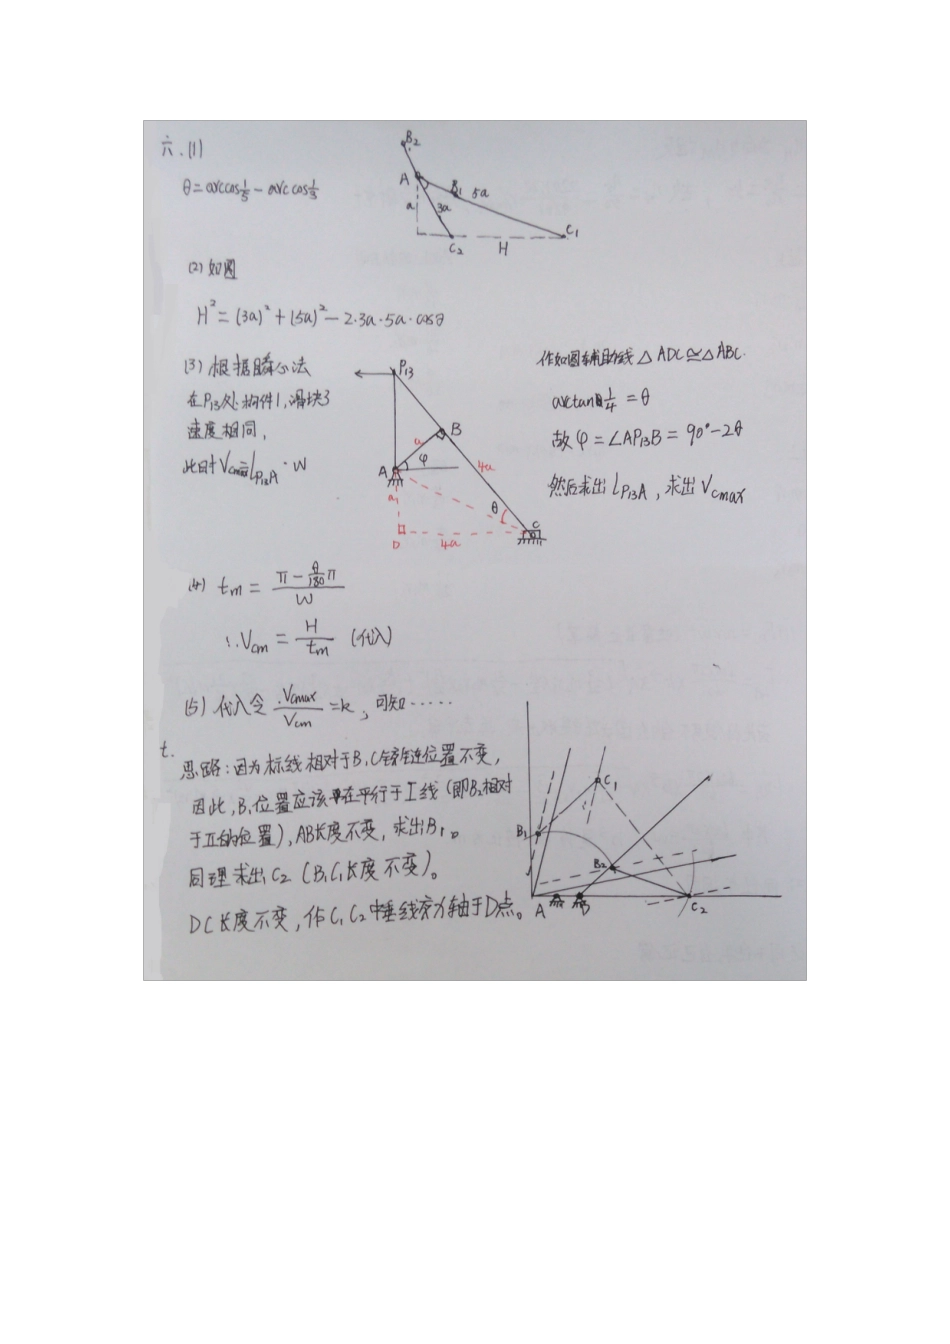 六、(1)
θ=arccos1/5-arccos1/3
B2
A
B1
5a
a
3a
C2
H
C1
(2)如图
H²=(3a)²+(5a)²-2·3a·5a·cosθ
(3)根据瞬心法
在P13处构件1,滑块3
速度相同,
此时Vcmax=LP13A·W
P13
B
a
φ
A
4a
a
θ
C
D
4a
作如图辅助线△ADC≌△ABC.
arctan1/4=θ
故φ=∠AP13B=90°-2θ
然后求出LP13A,求出Vcmax
(4) tm=(π-θ/180π)/W
∴Vcm=H/tm (代入)
(5)代入令Vcmax/Vcm=k,可知……
七.
思路:因为标线相对于B,C铰链位置不变,
因此,B1位置应该在平行于I线(即B2相对
于II的位置),AB长度不变,求出B1。
同理求出C2(B1C1长度不变)。
DC长度不变,作C1C2中垂线交力轴于D点。
C1
B1
B2
A
C2